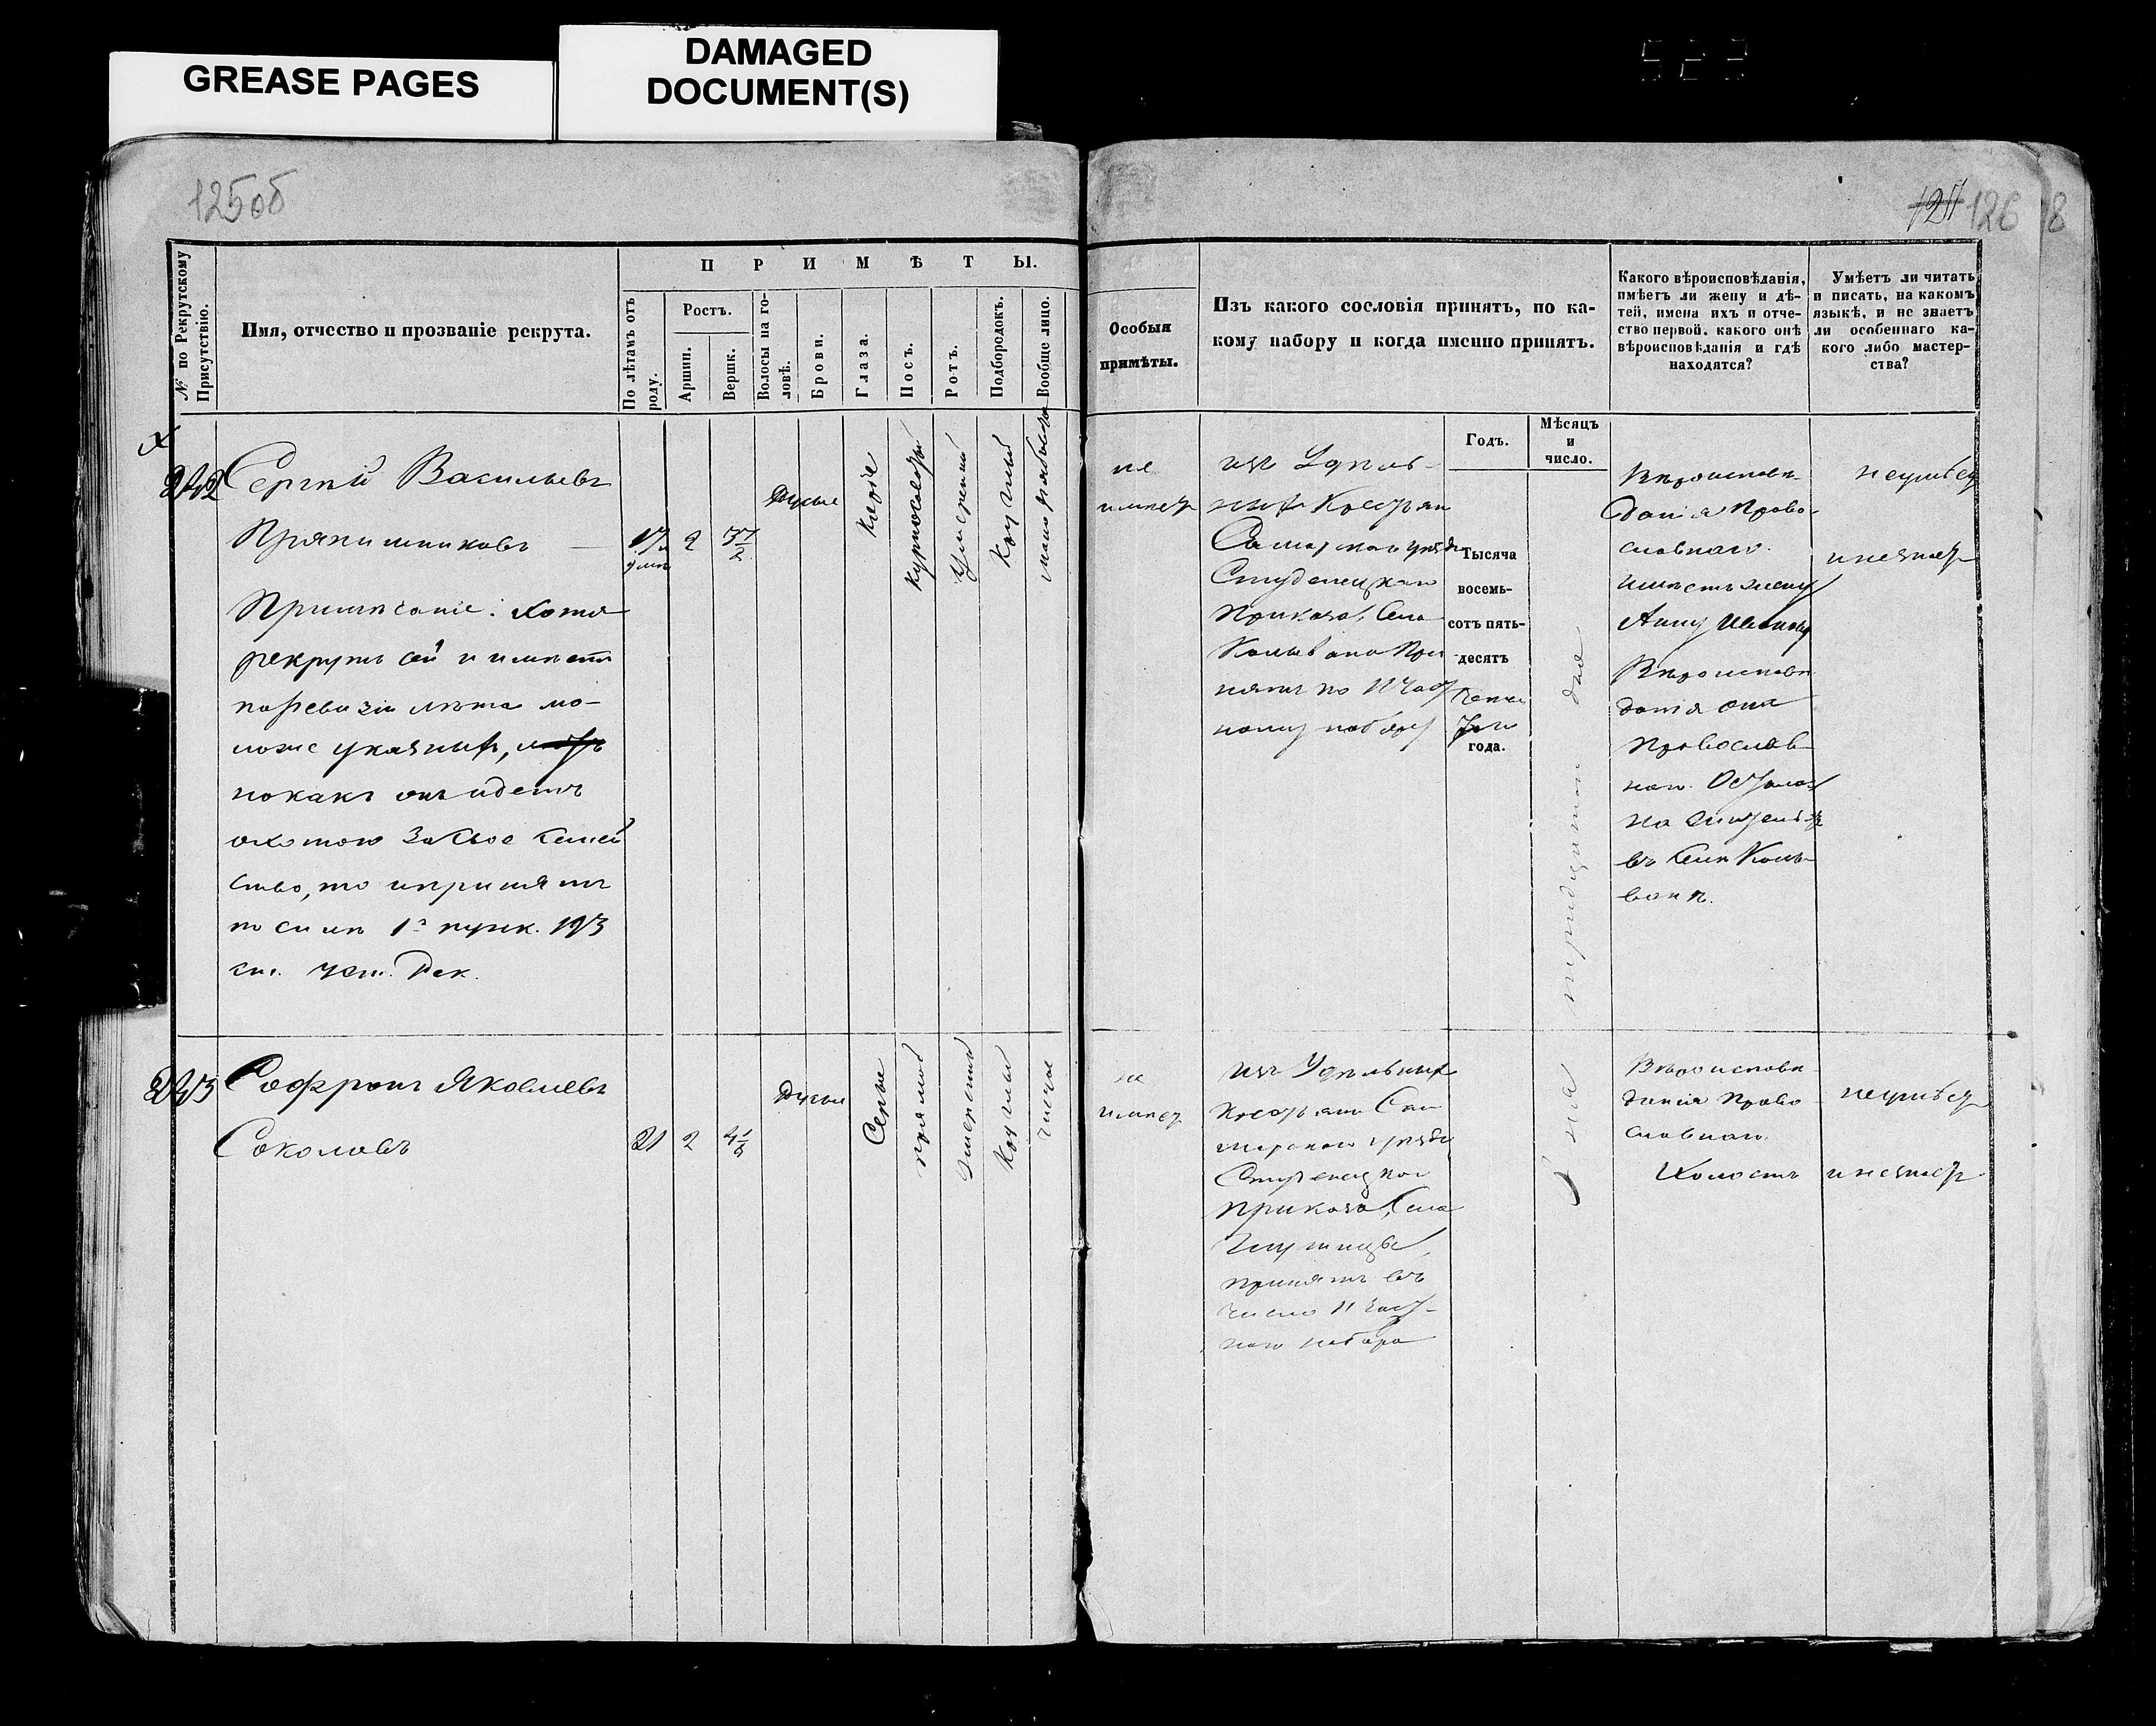 GREASE PAGES
DAMAGED
DOCUMENT(S)
125об
126
№ по Рекрутскому
Присутствію.
Имя, отчество и прозваніе рекрута.
ПРИМѢТЫ.
По лѣтамъ отъ
роду.
Ростъ.
Аршин.
Вершк.
Волосы на го-
ловѣ.
Брови.
Глаза.
Носъ.
Ротъ.
Подбородокъ.
Вообще лицо.
Особыя
примѣты.
Изъ какого сословія принятъ, по ка-
кому набору и когда именно принятъ.
Какого вѣроисповѣданія,
имѣетъ ли жену и дѣ-
тей, имена ихъ и отче-
ство первой, какого онѣ
вѣроисповѣданія и гдѣ
находятся?
Умѣетъ ли читать
и писать, на какомъ
языкѣ, и не знаетъ
ли особеннаго ка-
кого либо мастер-
ства?
Годъ.
Мѣсяцъ
и
число.
Сергѣй Васильевъ
Прянишниковъ
17
2
3 1/2
русые
Каріе
курносоватый
умѣренный
Круглый
Примѣчаніе: Хотя
рекрутъ сей и имѣетъ
по ревизіи лѣта мо-
ложе указныхъ,
но какъ онъ идетъ
охотою за свое семей
ство, то и принятъ
по силѣ 1 пунк. 193
ст. Уст. Рек.
не
имѣетъ
изъ Удѣль-
ныхъ Крестьян
Самарскаго уѣзда
Студенецкаго
Приказа, Села
Колывана При
нятъ по 11 Част
ному набору
Тысяча
восемь-
сотъ пять-
десятъ
четве
рта
года.
тридцатаго дня
Вѣроисповѣ-
данія Право-
славнаго.
имѣетъ жену
Анну Иванову
Вѣроисповѣ
данія она
Православ-
наго. Осталась
на жительствѣ
въ Селѣ Колы-
ванѣ.
неумѣетъ
и незнаетъ
Софронъ Яковлевъ
Соколовъ
21
2
4 1/2
Русые
Серые
прямой
умеренный
Круглый
чистое
не
имѣетъ
изъ Удѣльныхъ
Крестьянъ Са
марскаго уѣзда
Студенецкаго
Приказа, Села
принятъ въ
число 11 част-
наго набора
Вѣроисповѣ-
данія Право
славнаго.
Холостъ
неумѣетъ
и незнаетъ